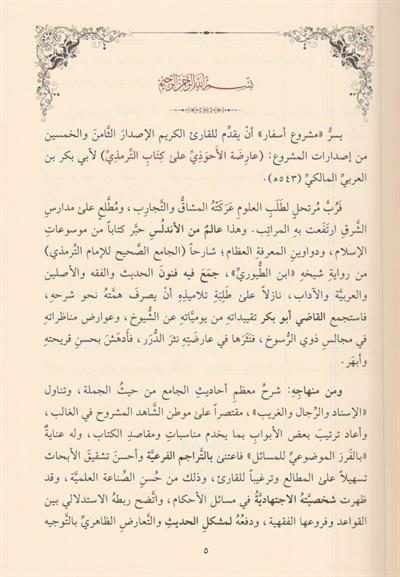 بِسْمِ اللَّهِ الرَّحْمَنِ الرَّحِيمِ
يسرُّ «مشروع أسفار» أنْ يقدِّم للقارئ الكريم الإصدارَ الثَّامنَ والخمسين
من إصدارات المشروع: (عارِضَة الأَحوَذِيِّ علىٰ كِتَابِ التِّرمذِيِّ) لأبي بكر بن
العربيِّ المالكيِّ (٥٤٣هـ).
فَرُبَّ مُرتحلٍ لطَلَبِ العلومِ عَرَكَتْهُ المشاقُّ والتَّجارِب، ومُطَّلعٍ علىٰ مدارسِ
الشَّرقِ ارتَفَعت به المراتِب. وهذا عالمٌ من الأندلُسِ حبَّر كتاباً من موسوعاتِ
الإسلام، ودواوينِ المعرفةِ العظام؛ شارحاً (الجامع الصَّحيح للإمام التِّرمذي)
من روايةِ شيخهِ «ابن الطُّيوريِّ»، جمَعَ فيه فنونَ الحديث والفقه والأصلين
والعربيَّة والآداب، نازلاً علىٰ طَلِبَةِ تلاميذِهِ أنْ يصرفَ همَّتهُ نحو شرحِهِ،
فاستجمع القاضي أبو بكر تقييداتهِ من يوميَّاتِهِ عن الشُّيوخ، وعوارض مناظراتهِ
في مجالسِ ذوي الرُّسوخ، فنَثَرَها في عارضَتِهِ نثرَ الدُّرَر، فأدهَشَ بحسنِ قريحتهِ
وأبهَر.
ومن منهاجِهِ: شرحُ معظمِ أحاديثِ الجامع من حيثُ الجملة، وتناول
«الإسناد والرِّجال والغريب»، مقتصراً علىٰ موطنِ الشَّاهد المشروح في الغالب،
وأعاد ترتيبَ بعض الأبوابِ بما يخدم مناسبات ومقاصدِ الكتاب، وله عنايةٌ
«بالفَرز الموضوعيِّ للمسائل» فاعتنىٰ بالتَّراجم الفرعيَّة وأحسنَ تشقيقَ الأبحاث
تسهيلاً علىٰ المطالع وترغيباً للقارئ، وذلك من حُسنِ الصِّناعة العلميَّة، وقد
ظهرت شخصيَّتهُ الاجتهاديَّةُ في مسائل الأحكام، واتَّضح ربطهُ الاستدلالي بين
القواعد وفروعها الفقهية، ودفعُهُ لمشكلِ الحديثِ والتَّعارضِ الظاهريِّ بالتَّوجيه
٥